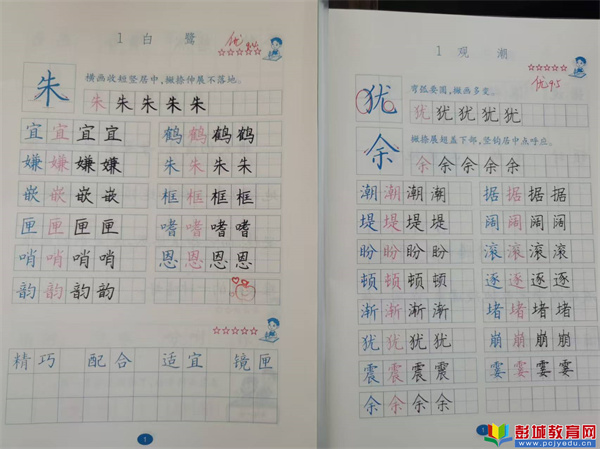 1 白鹭
优
朱 横画收短竖居中,撇捺伸展不落地。
朱朱朱朱朱
宜宜宜宜 鹤鹤鹤鹤
嫌嫌嫌嫌 朱朱朱朱
嵌嵌嵌嵌 框框框框
匣匣匣匣 嗜嗜嗜嗜
哨哨哨哨 恩恩恩恩
韵韵韵韵
精巧 配合 适宜 镜匣
1
1 观潮
优95
犹 弯弧要圆,撇画多变。
犹犹犹犹犹
余 撇捺展翅盖下部,竖钩居中点呼应。
余余余余余
潮潮潮潮 据据据据
堤堤堤堤 阔阔阔阔
盼盼盼盼 滚滚滚滚
顿顿顿顿 逐逐逐逐
渐渐渐渐 堵堵堵堵
犹犹犹犹 崩崩崩崩
震震震震 霎霎霎霎
余余余余
1
彭城教育网
www.pcjyedu.cn